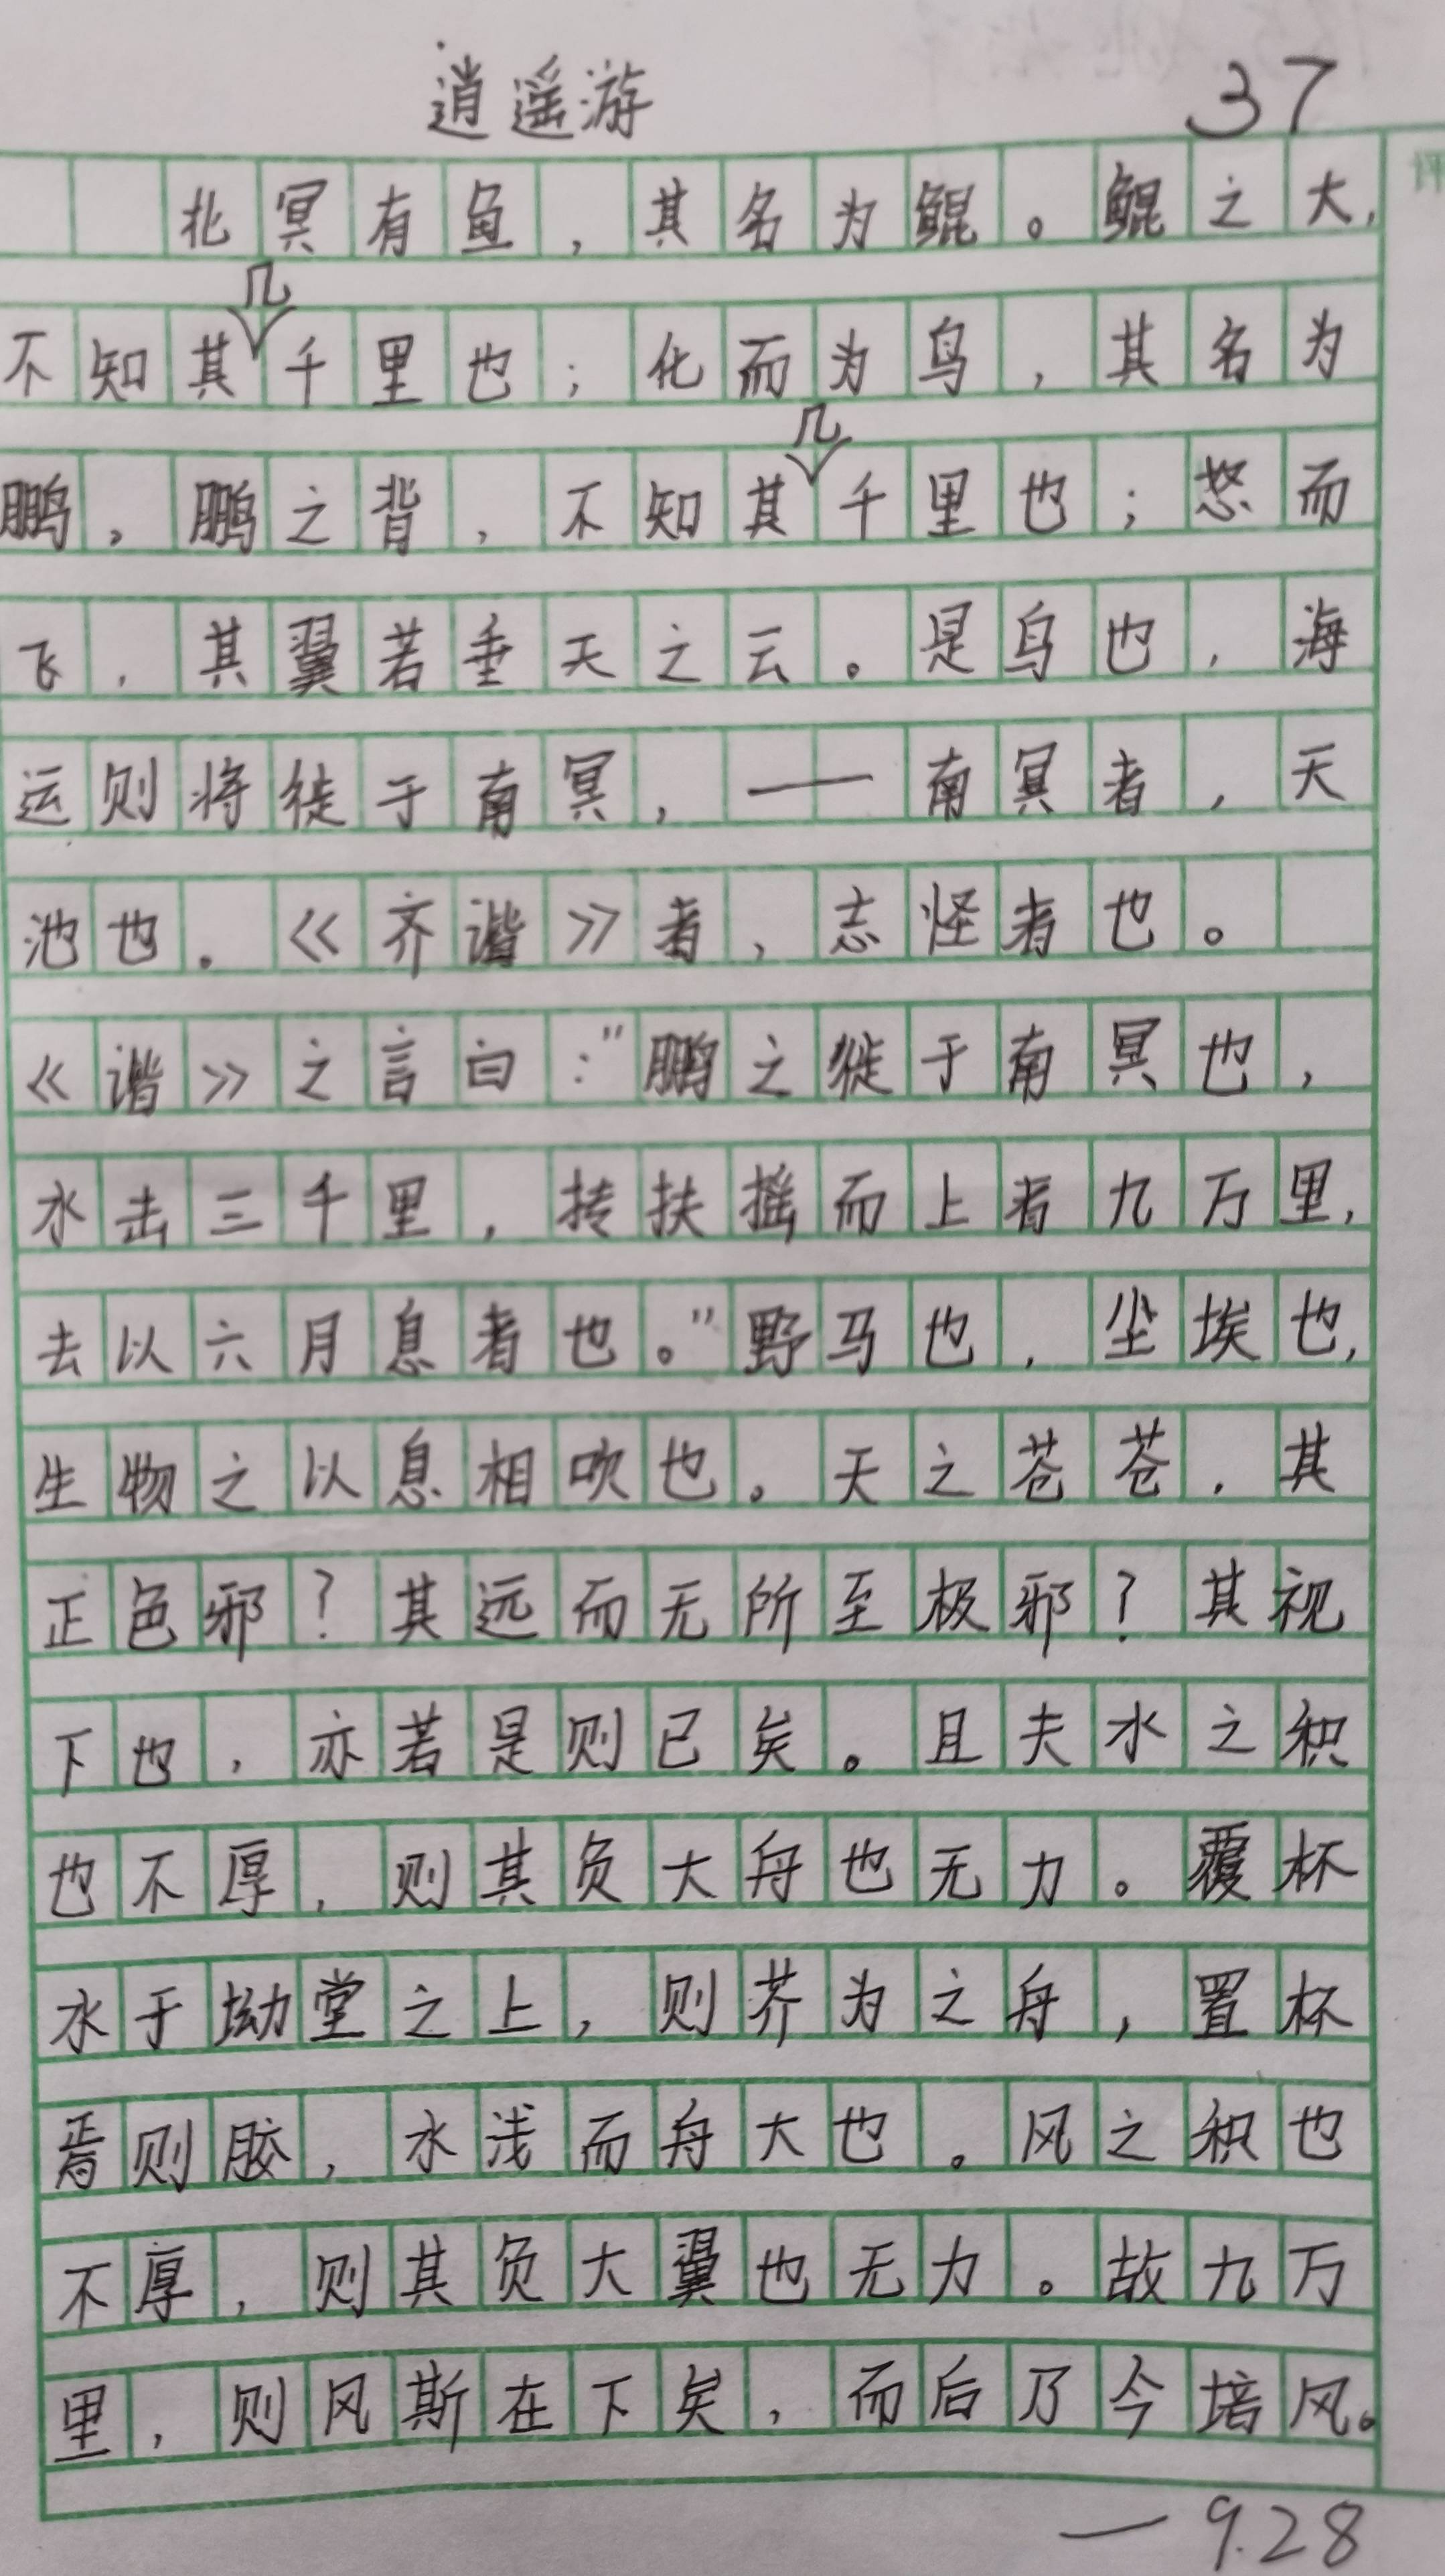 逍遥游 37
北冥有鱼，其名为鲲。鲲之大，
不知其几千里也；化而为鸟，其名为
鹏。鹏之背，不知其几千里也；怒而
飞，其翼若垂天之云。是鸟也，海
运则将徙于南冥，——南冥者，天
池也。《齐谐》者，志怪者也。
《谐》之言曰：“鹏之徙于南冥也，
水击三千里，抟扶摇而上者九万里，
去以六月息者也。”野马也，尘埃也，
生物之以息相吹也。天之苍苍，其
正色邪？其远而无所至极邪？其视
下也，亦若是则已矣。且夫水之积
也不厚，则其负大舟也无力。覆杯
水于坳堂之上，则芥为之舟，置杯
焉则胶，水浅而舟大也。风之积也
不厚，则其负大翼也无力。故九万
里，则风斯在下矣，而后乃今培风。
—9.28